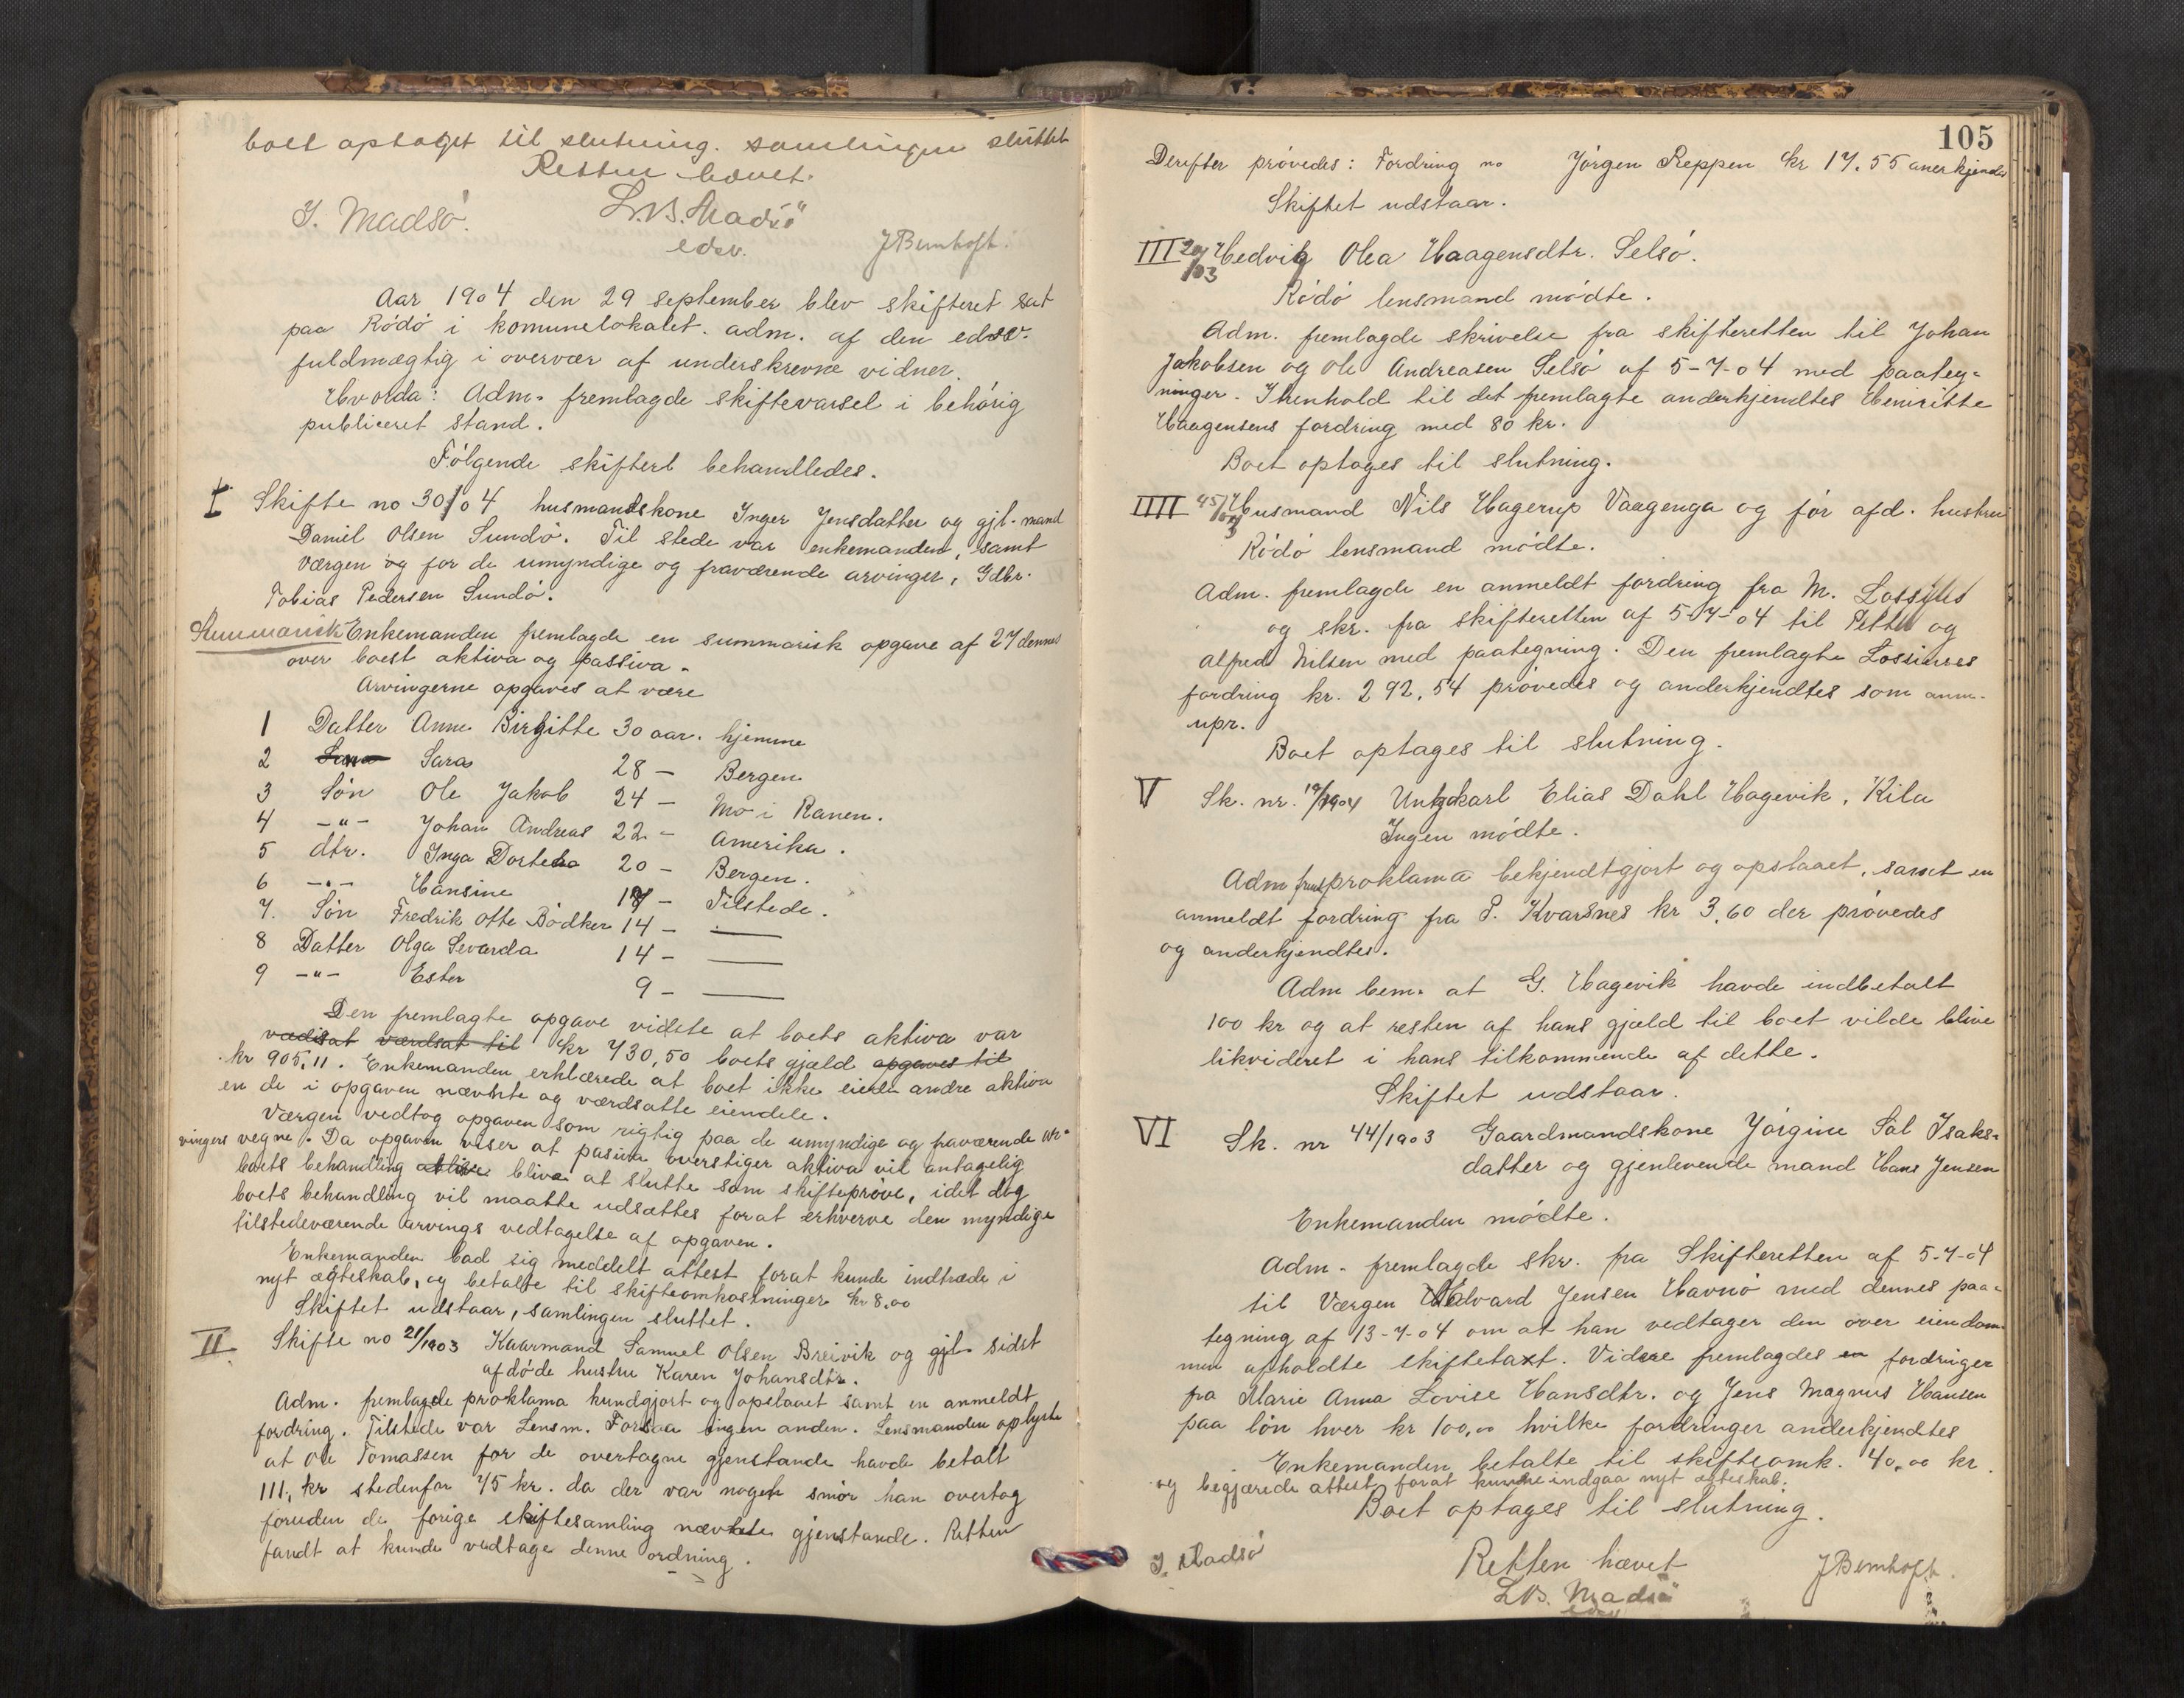 boet optaget til slutning. samlingen sluttet
Retten hævet.
J. Madsö. L.B. Madsö
edsv. J Bernhoft.
Aar 1904 den 29 september blev skifteret sat
paa Rödö i komunelokalet. adm. af den edsv.
fuldmægtig i overvær af underskrevne vidner.
Hvorda: Adm. fremlagde skiftevarsel i behörig
publiceret stand.
Fölgende skifter behandledes.
I Skifte no 30/04 husmandskone Inger Jensdatter og gjl. mand
Daniel Olsen Sundö. Til stede var enkemanden, samt
værgen og for de umyndige og fraværende arvinger, Gdbr.
Tobias Pedersen Sundö.
Summarisk Enkemanden fremlagde en summarisk opgave af 27 dennes
over boest aktiva og passiva.
Arvingerne opgaves at være
1 Datter Anne Birgitte 30 aar. hjemme
2 Sara 28 – Bergen
3 Sön Ole Jakob 24 – Mo i Ranen.
4 –"– Johan Andreas 22 – Amerika.
5 dtr. Inga Dortea 20 – Bergen.
6 –"– Hansine 17 – Tilstede.
7. Sön Fredrik Otto Bödker 14 – —
8 Datter Olga Sevarda 14 – —
9 –"– Ester 9 – —
Den fremlagte opgave vidste at boets aktiva var
vædisat værdsat til kr 730,50 boets gjæld opgaves til
kr 905,11. Enkemanden erklærede at boet ikke eiede andre aktiva
en de i opgaven nævnte og værdsatte eiendele.
Værgen vedtog opgaven som rigtig paa de umyndige og fraværende ar-
vingers vegne. Da opgaven viser at pasiva overstiger aktiva vil antagelig
boets behandling blive at slutte som skifteprøve, idet dog
boets behandling vil maatte udsættes forat erhverve den myndige
tilstedeværende arvings vedtagelse af opgaven.
Enkemanden bad sig meddelt attest forat kunde indtræde i
nyt ægteskab, og betalte til skifteomkostninger kr 8,00
Skiftet udstaar, samlingen sluttet.
II Skifte no 21/1903 Kaarmand Samuel Olsen Breivik og gjl. sidst
afdöde hustru Karen Johansdtr.
Adm. fremlagde proklama kundgjort og opslaaet samt en anmeldt
fordring. Tilstede var Lensm. Forsaa ingen anden. Lensmanden oplyste
at Ole Tomassen for de overtagne gjenstande havde betalt
111, kr stedenfor 75 kr. da der var noget smör han overtog
foruden de forige skiftesamling nævnte gjenstande. Retten
fandt at kunde vedtage denne ordning.
105
Derefter prövedes: Fordring no Jörgen Reppen kr 17.55 anerkjendes
Skiftet udstaar.
III 29/03 Hedvig Olea Haagensdtr. Selsö.
Rödö lensmand mödte.
Adm. fremlagde skrivelse fra skifteretten til Johan
Jakobsen og Ole Andreasen Selsö af 5-7-04 med paateg-
ninger. I henhold til det fremlagte anderkjendtes Henriette
Haagensens fordring med 80 kr.
Boet optages til slutning.
IIII 45/03 Husmand Nils Hagerup Vaagenga og för afd. hustru
Rödö lensmand mödte.
Adm. fremlagde en anmeldt fordring fra M. Lossius
og skr. fra skifteretten af 5-7-04 til Petter og
Alfred Nilsen med paategning. Den fremlagte Lossiuses
fordring kr. 292,54 prövedes og anderkjendtes som anm.
upr.
Boet optages til slutning.
V Sk. nr. 19/1904 Ungkarl Elias Dahl Hagevik, Kila
Ingen mödte.
Adm freml proklama bekjendtgjort og opslaaet, samt en
anmeldt fordring fra P. Kvarsnes kr 3,60 der prövedes
og anderkjendtes.
Adm bem. at G. Hagevik havde indbetalt
100 kr og at resten af hans gjæld til boet vilde blive
likvideret i hans tilkommende af dette.
Skiftet udstaar.
VI Sk. nr 44/1903 Gaardmandskone Jörgine Sal Isaks-
datter og gjenlevende mand Hans Jensen
Enkemanden mödte.
Adm. fremlagde skr. fra Skifteretten af 5-7-04
til Værgen Edvard Jensen Havnö med dennes paa-
tegning af 13-7-04 om at han vedtager den over eiendom
men afholdte skiftetaxt. Videre fremlagdes en fordringer
fra Marie Anna Lovise Hansdtr. og Jens Magnus Hansen
paa lön hver kr 100,00 hvilke fordringer anderkjendtes
Enkemanden betalte til skifteomk. 40,00 kr.
og begjærede attest forat kunne indgaa nyt ægteskab.
Boet optages til slutning.
J. Madsö Retten hævet J Bernhoft.
L.B. Madsö
edsv